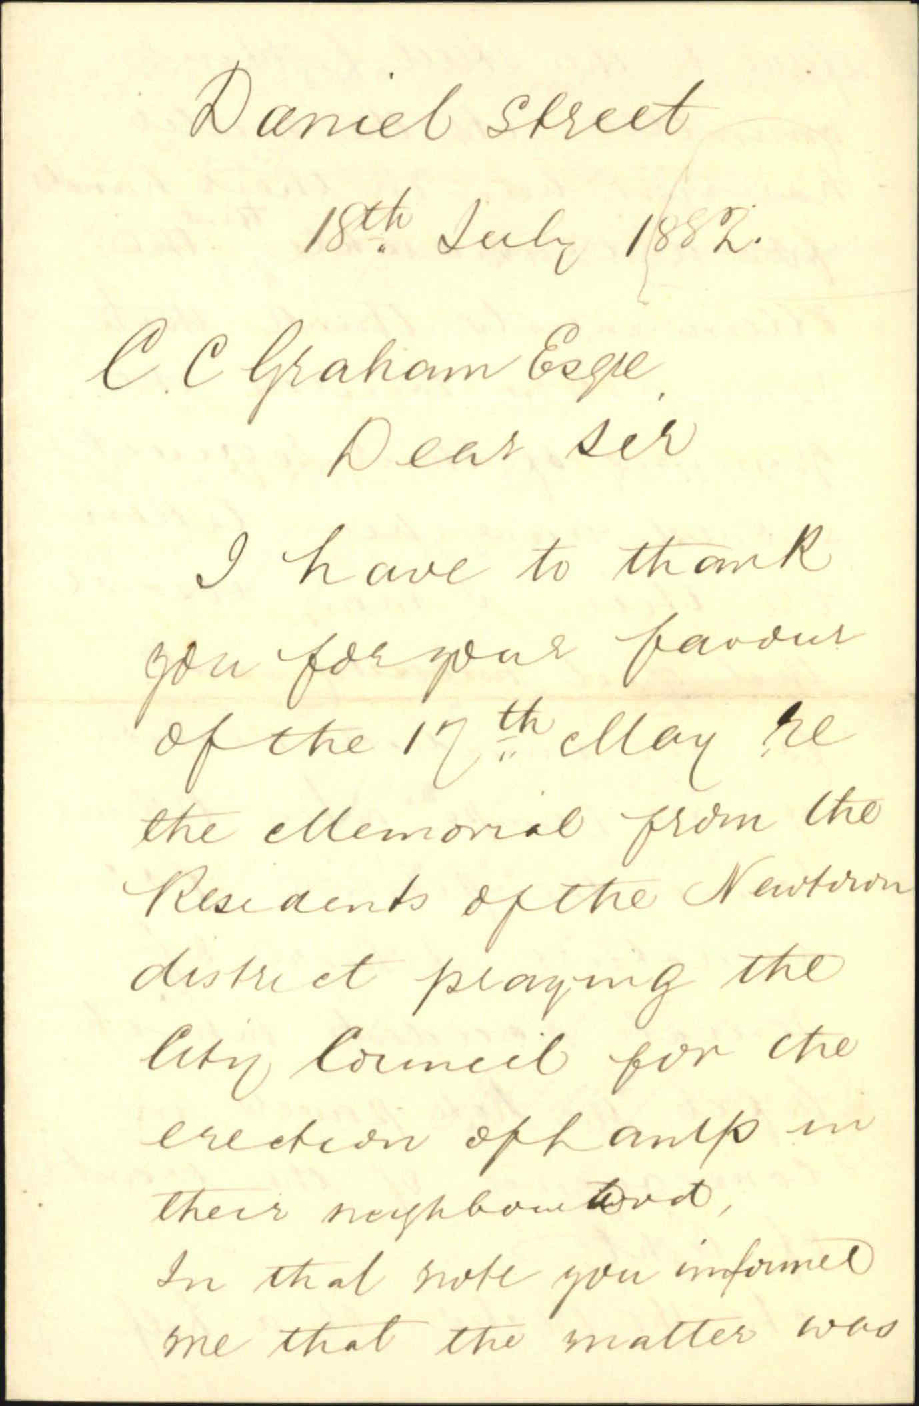 Daniel Street
18th July 1882.
C. C Graham Esqre
Dear Sir
I have to thank
you for your favour
of the 17th May re
the Memorial from the
Residents of the Newtown
district praying the
City Council for the
erection of Lamps in
their neighbourhood,
In that note you informed
me that the matter was